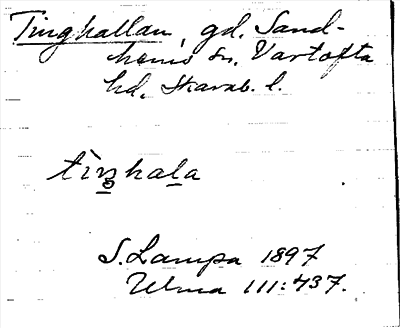 Tinghallan, gd. Sand-
hems sn. Vartofta
hd. Skarab. l.
tìŋhala
S. Lampa 1897
Ulma 111:437.